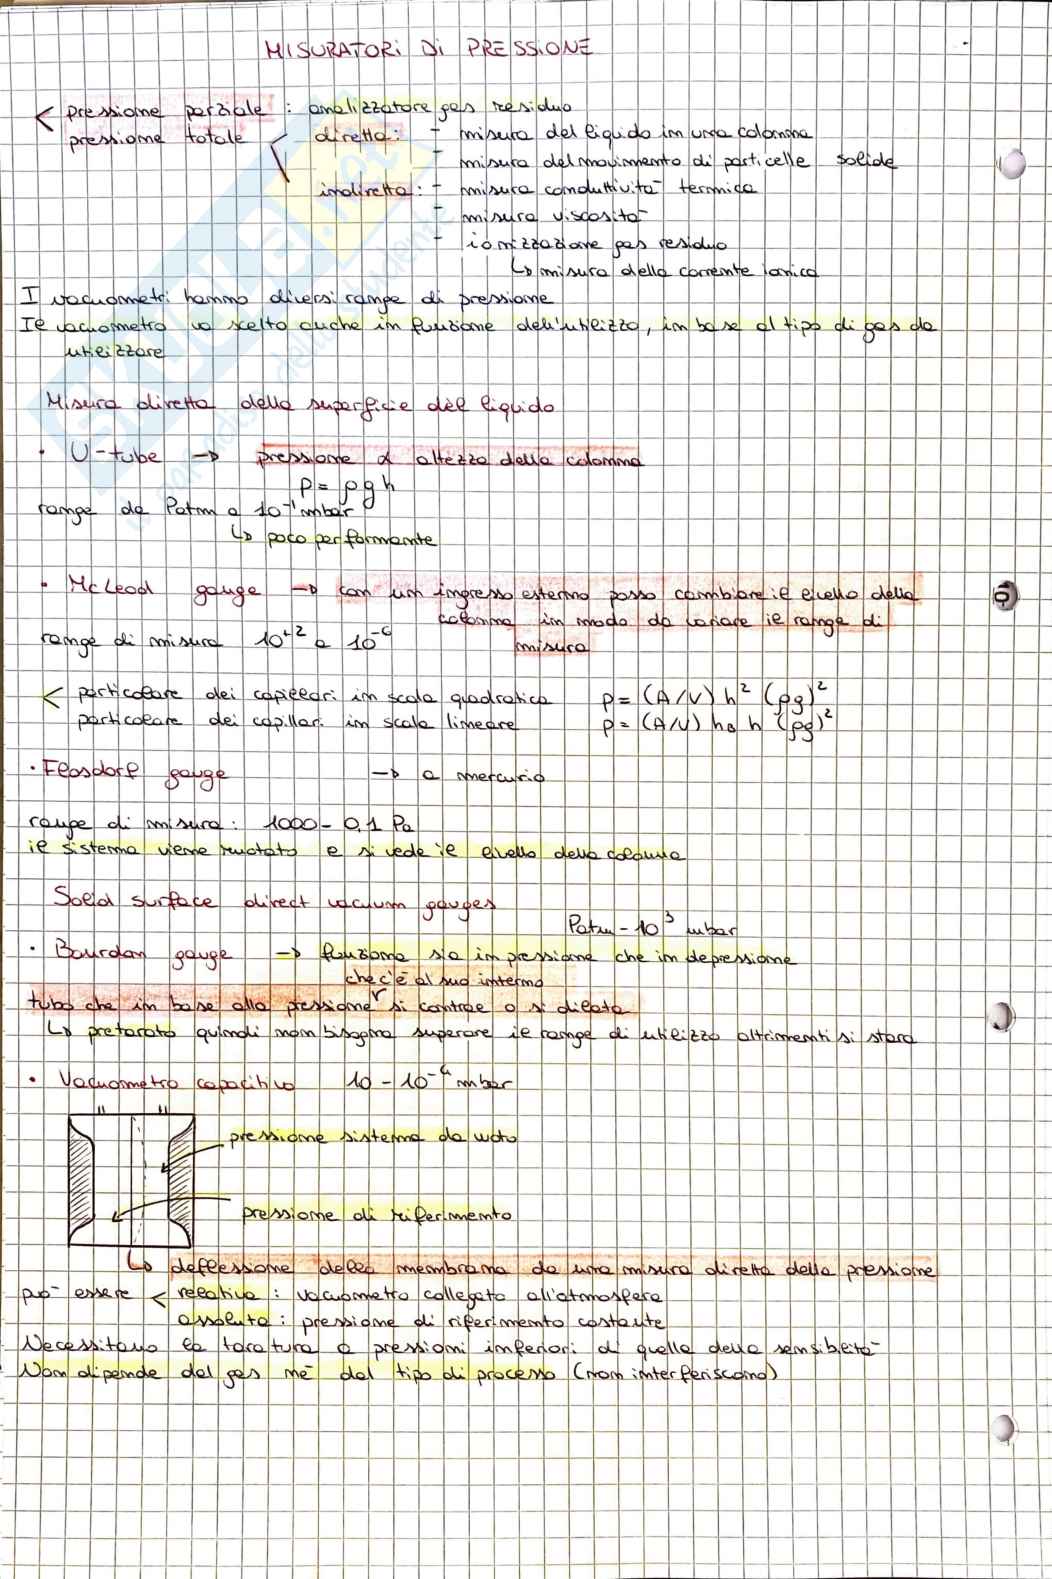 MISURATORI DI PRESSIONE
< pressione parziale : analizzatore gas residuo
pressione totale < diretta: - misura del liquido in una colonna
- misura del movimento di particelle solide
indiretta: - misura conduttività termica
- misura viscosità
- ionizzazione gas residuo
↳ misura della corrente ionica
I vacuometri hanno diversi range di pressione
Il vacuometro va scelto anche in funzione dell'utilizzo, in base al tipo di gas da
utilizzare
Misura diretta della superficie del liquido
• U-tube → pressione α altezza della colonna
P = ρgh
range da Patm a 10⁻¹ mbar
↳ poco performante
• McLeod gauge → con un ingresso esterno posso cambiare il livello della
colonna in modo da variare il range di
misura
range di misura 10⁺² a 10⁻⁶
< particolare dei capillari in scala quadratica p = (A/V) h² (ρg)²
particolare dei capillari in scala lineare p = (A/V) h₀ h (ρg)²
• Flosdorf gauge → a mercurio
range di misura: 1000 - 0,1 Pa
il sistema viene ruotato e si vede il livello della colonna
Solid surface direct vacuum gauges
Patm - 10³ mbar
• Bourdon gauge → funziona sia in pressione che in depressione
che c'è al suo interno
tubo che in base alla pressione si contrae o si dilata
↳ pretarato quindi non bisogna superare il range di utilizzo altrimenti si stara
• Vacuometro capacitivo 10 - 10⁻⁴ mbar
pressione sistema da vuoto
pressione di riferimento
↳ deflessione della membrana da una misura diretta della pressione
può essere < relativa : vacuometro collegato all'atmosfera
assoluta : pressione di riferimento costante
Necessitano la taratura a pressioni inferiori di quella della sensibilità
Non dipende dal gas né dal tipo di processo (non interferiscono)